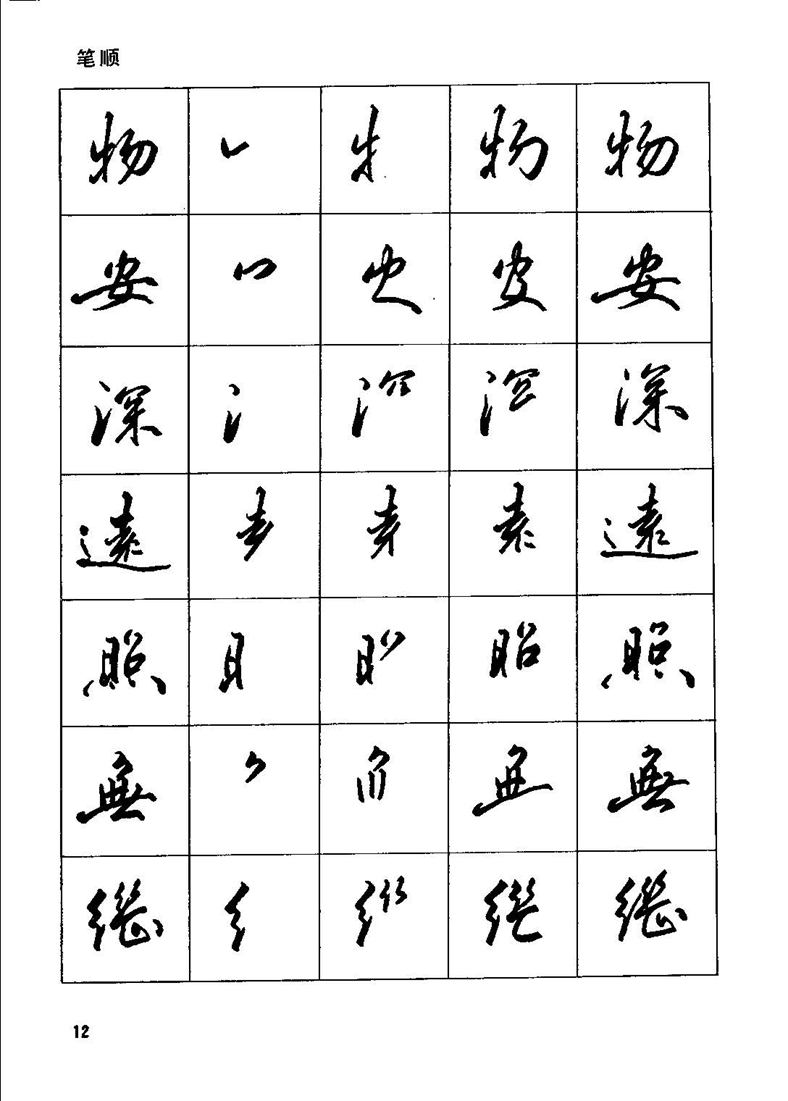 笔顺
物 物 物
安 安
深 深
遠 遠
照 昭 照
無 無
繼 繼
12